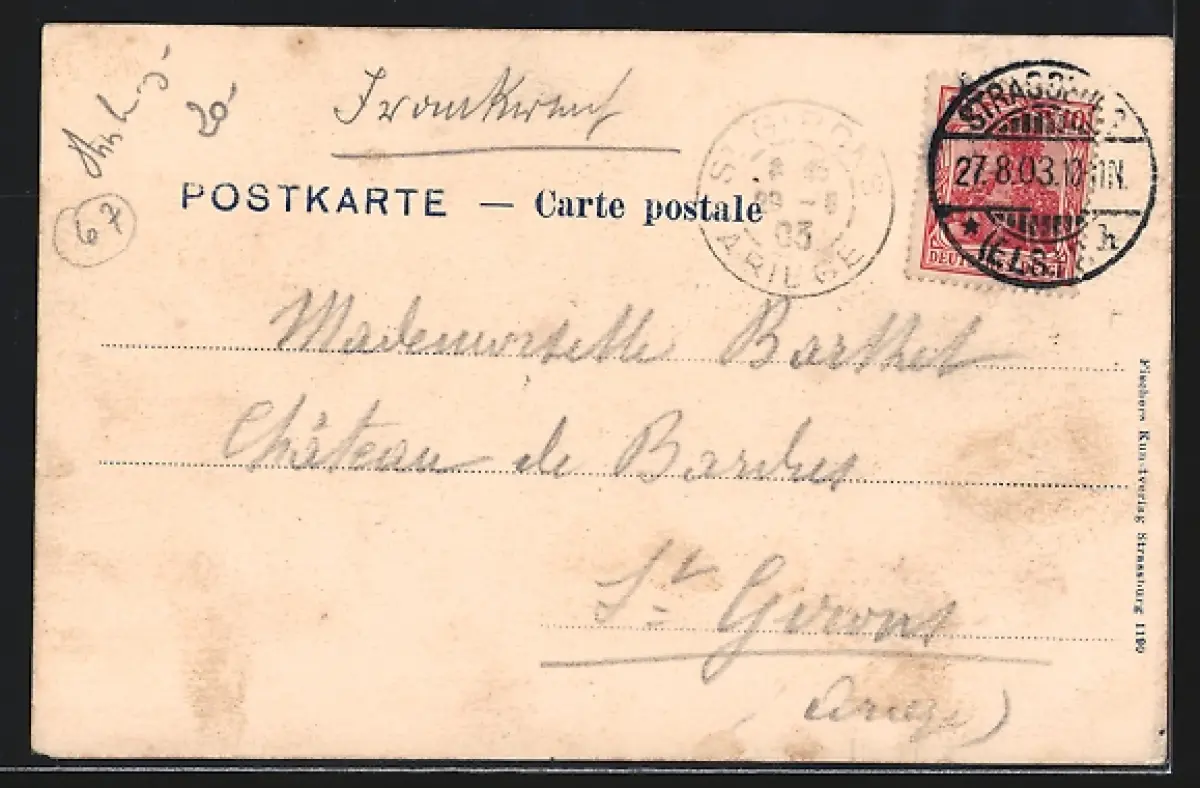 20
Frankreich
67
POSTKARTE — Carte postale
ST GIRONS
03
ARIEGE
10
STRASSBURG
27.8.03.10-11N.
* (ELS.) h
DEUTSCHES REICH
Mademoiselle Barthet
Château de Bardies
St Girons
(Ariège)
Fischers Kunstverlag Strassburg 1190